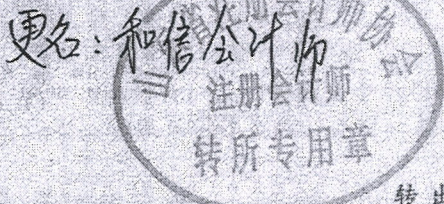 更名：和信会计师
师协会
注册会计师
转所专用章
转出